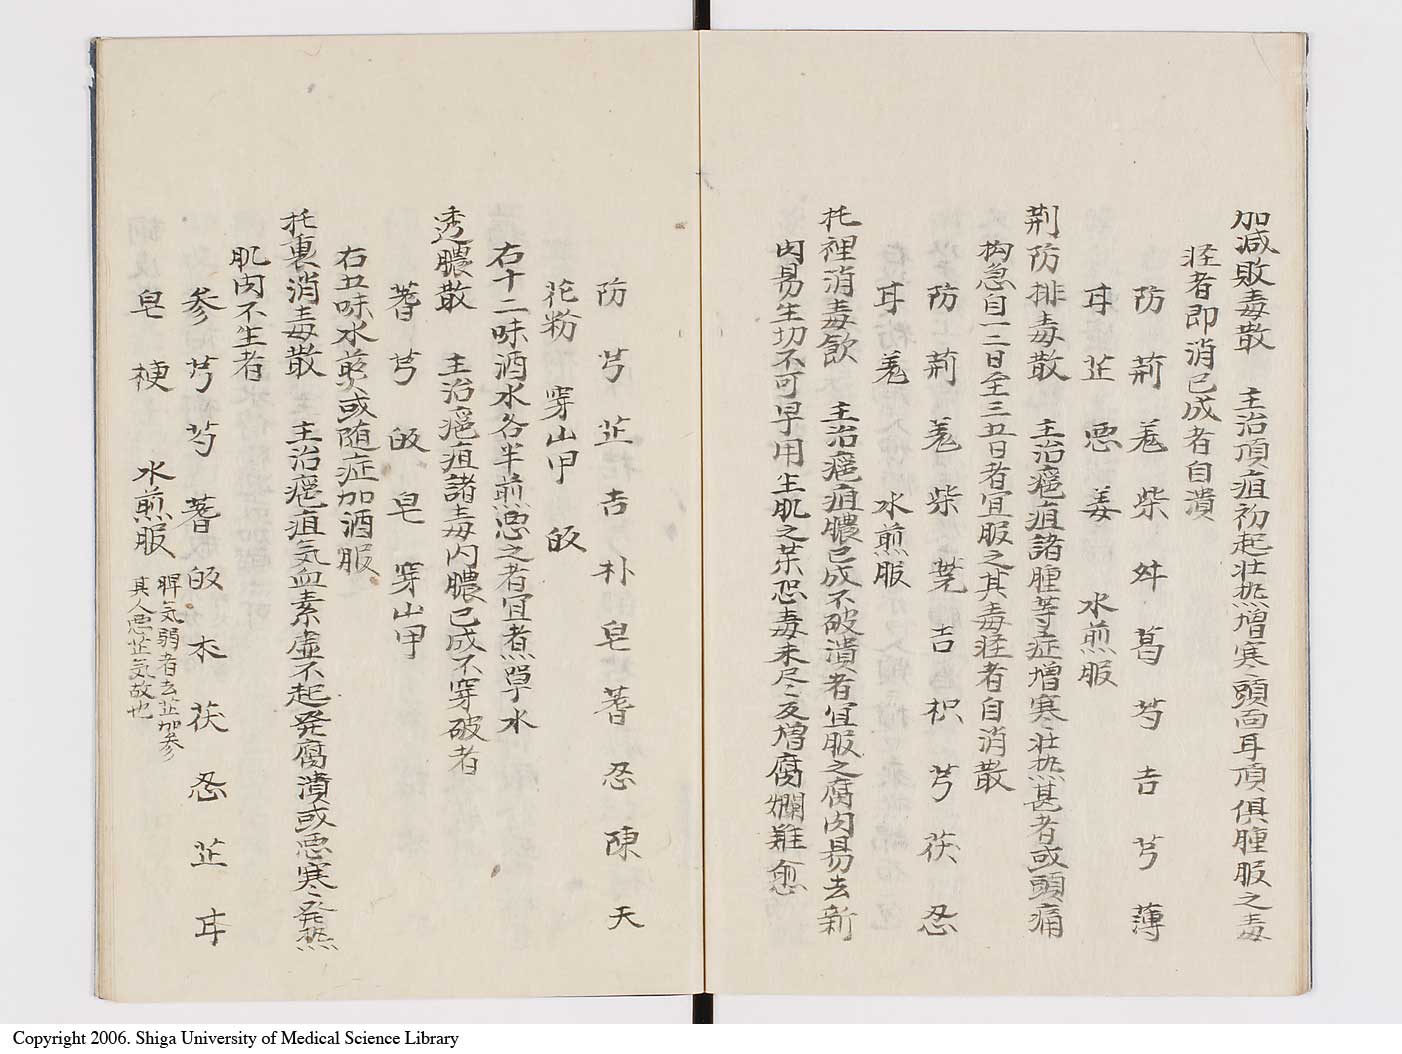 加減敗毒散　主治項疽初起壮熱増寒頭面耳項俱腫服之毒
軽者即消已成者自潰
防　荊　羗　柴　舛　葛　芍　吉　芎　薄
耳　芷　悪　姜　水煎服
荊防排毒散　主治癰疽諸腫等症増寒壮熱甚者或頭痛
拘急自一二日至三五日者宜服之其毒軽者自消散
防　荊　羗　柴　吉　枳　芎　茯　忍
耳　羗　水煎服
托裡消毒飲　主治癰疽膿已成不破潰者宜服之腐肉易去新
肉易生切不可早用生肌之薬恐毒未尽反増腐爛難愈
防　芎　芷　吉　朴　皂　蓍　忍　陳　天
花粉　穿山甲　皈
右十二味酒水各半煎悪之者宜煮單水
透膿散　主治癰疽諸毒内膿已成不穿破者
蓍　芎　皈　皂　穿山甲
右五味水煎或随症加酒服
托裏消毒散　主治癰疽気血素虚不起発腐潰或悪寒発熱
肌肉不生者
参　芎　芍　蓍　皈　朮　茯　忍　芷　耳
皂　梗　水煎服　脾気弱者去芷加参
其人悪芷気故也
Copyright 2006. Shiga University of Medical Science Library